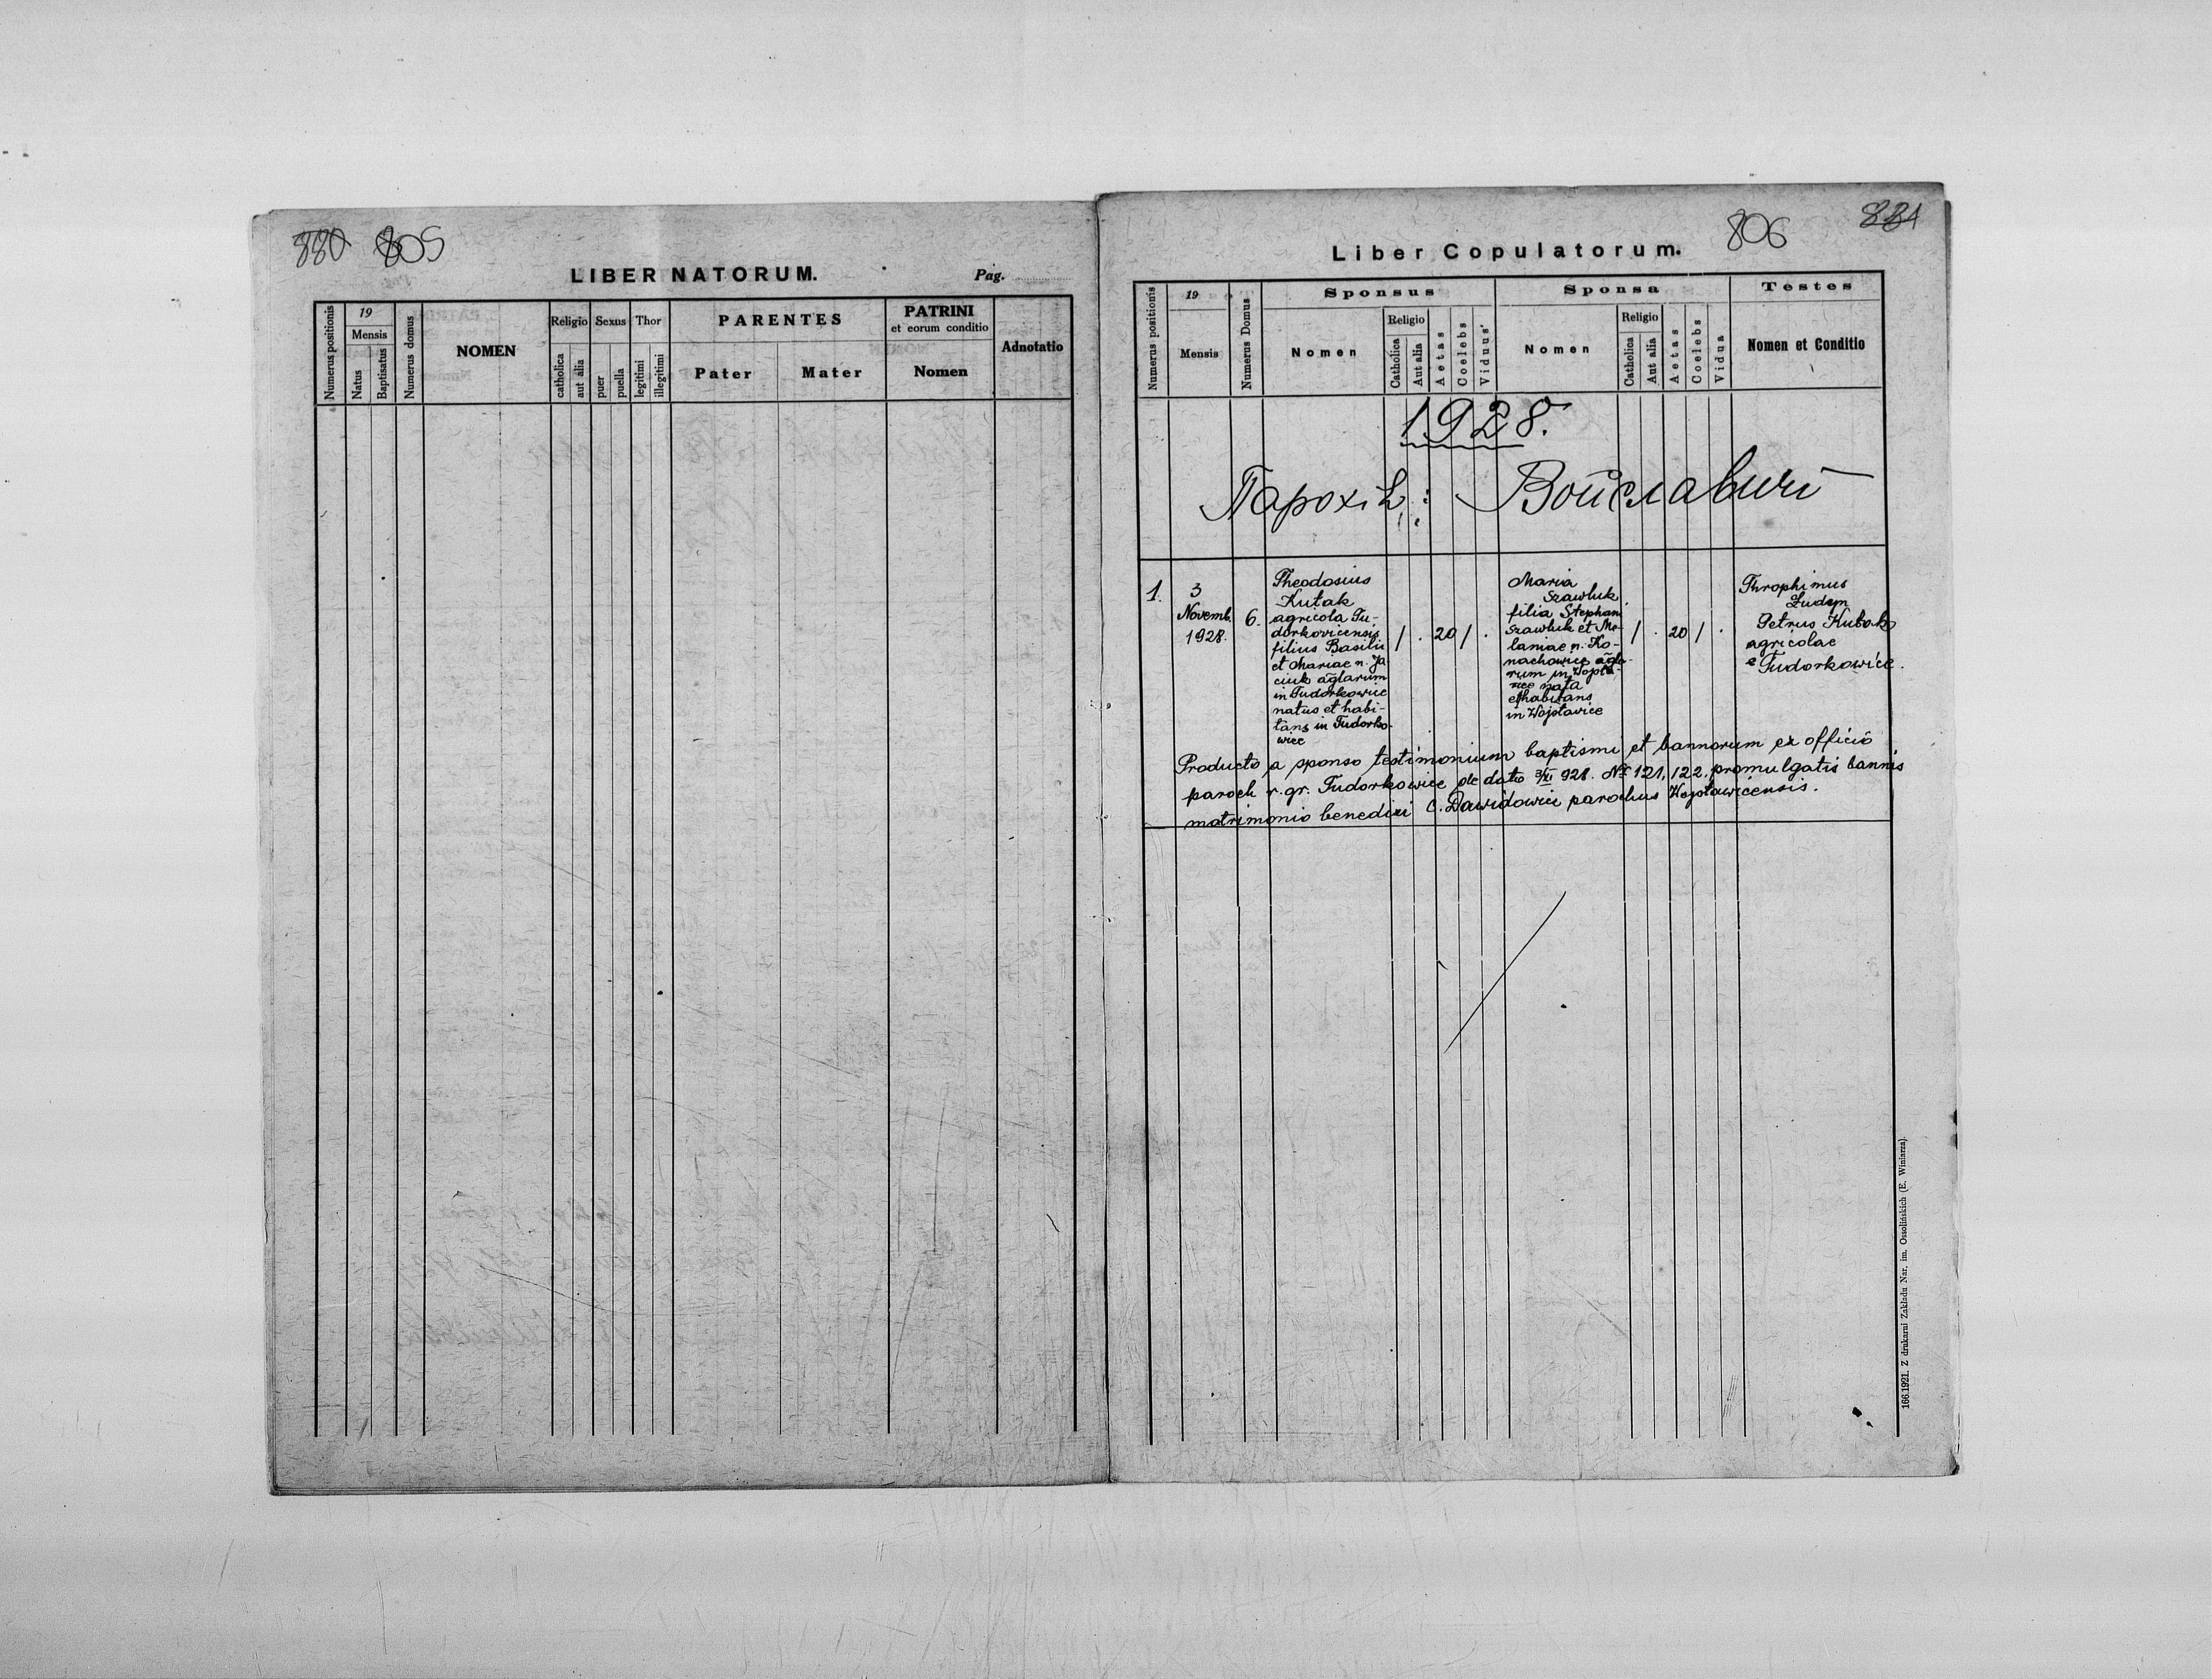 880 805
LIBER NATORUM.
Pag.
Numerus positionis
19
Mensis
Natus
Baptisatus
Numerus domus
NOMEN
Religio
catholica
aut alia
Sexus
puer
puella
Thor
legitimi
illegitimi
PARENTES
Pater
Mater
PATRINI
et eorum conditio
Nomen
Adnotatio
806
881
Liber Copulatorum.
Numerus positionis
19
Mensis
Numerus Domus
Sponsus
Nomen
Religio
Catholica
Aut alia
Aetas
Coelebs
Viduus
Sponsa
Nomen
Religio
Catholica
Aut alia
Aetas
Coelebs
Vidua
Testes
Nomen et Conditio
1928.
Парохія: Войславичі
1.
3
Novemb.
1928.
6.
Theodosius
Kutak
agricola Tu-
dorkovicensis
filius Basilii
et Mariae n. Ja
ciuk aglarum
in Tudorkowice
natus et habi-
tans in Tudorko-
wice
/ . 20 / .
Maria
Szawluk
filia Stephani
Szawluk et Me-
laniae n. Ko-
nachowicz agla-
rum in Wojsła-
wice nata
et habitans
in Wojsławice
/ . 20 / .
Throphimus
Ludyn
Petrus Kutak
agricolae
e Tudorkowice.
Producto a sponso testimonium baptismi et bannorum ex officio
paroch r. gr. Tudorkowice de dato 3/XI 928. № 121, 122. promulgatis bannis
matrimonio benedixi C. Dawidowicz parochus Wojsławicensis.
166.1921. Z drukarni Zakładu Nar. im. Ossolińskich (E. Winiarza).